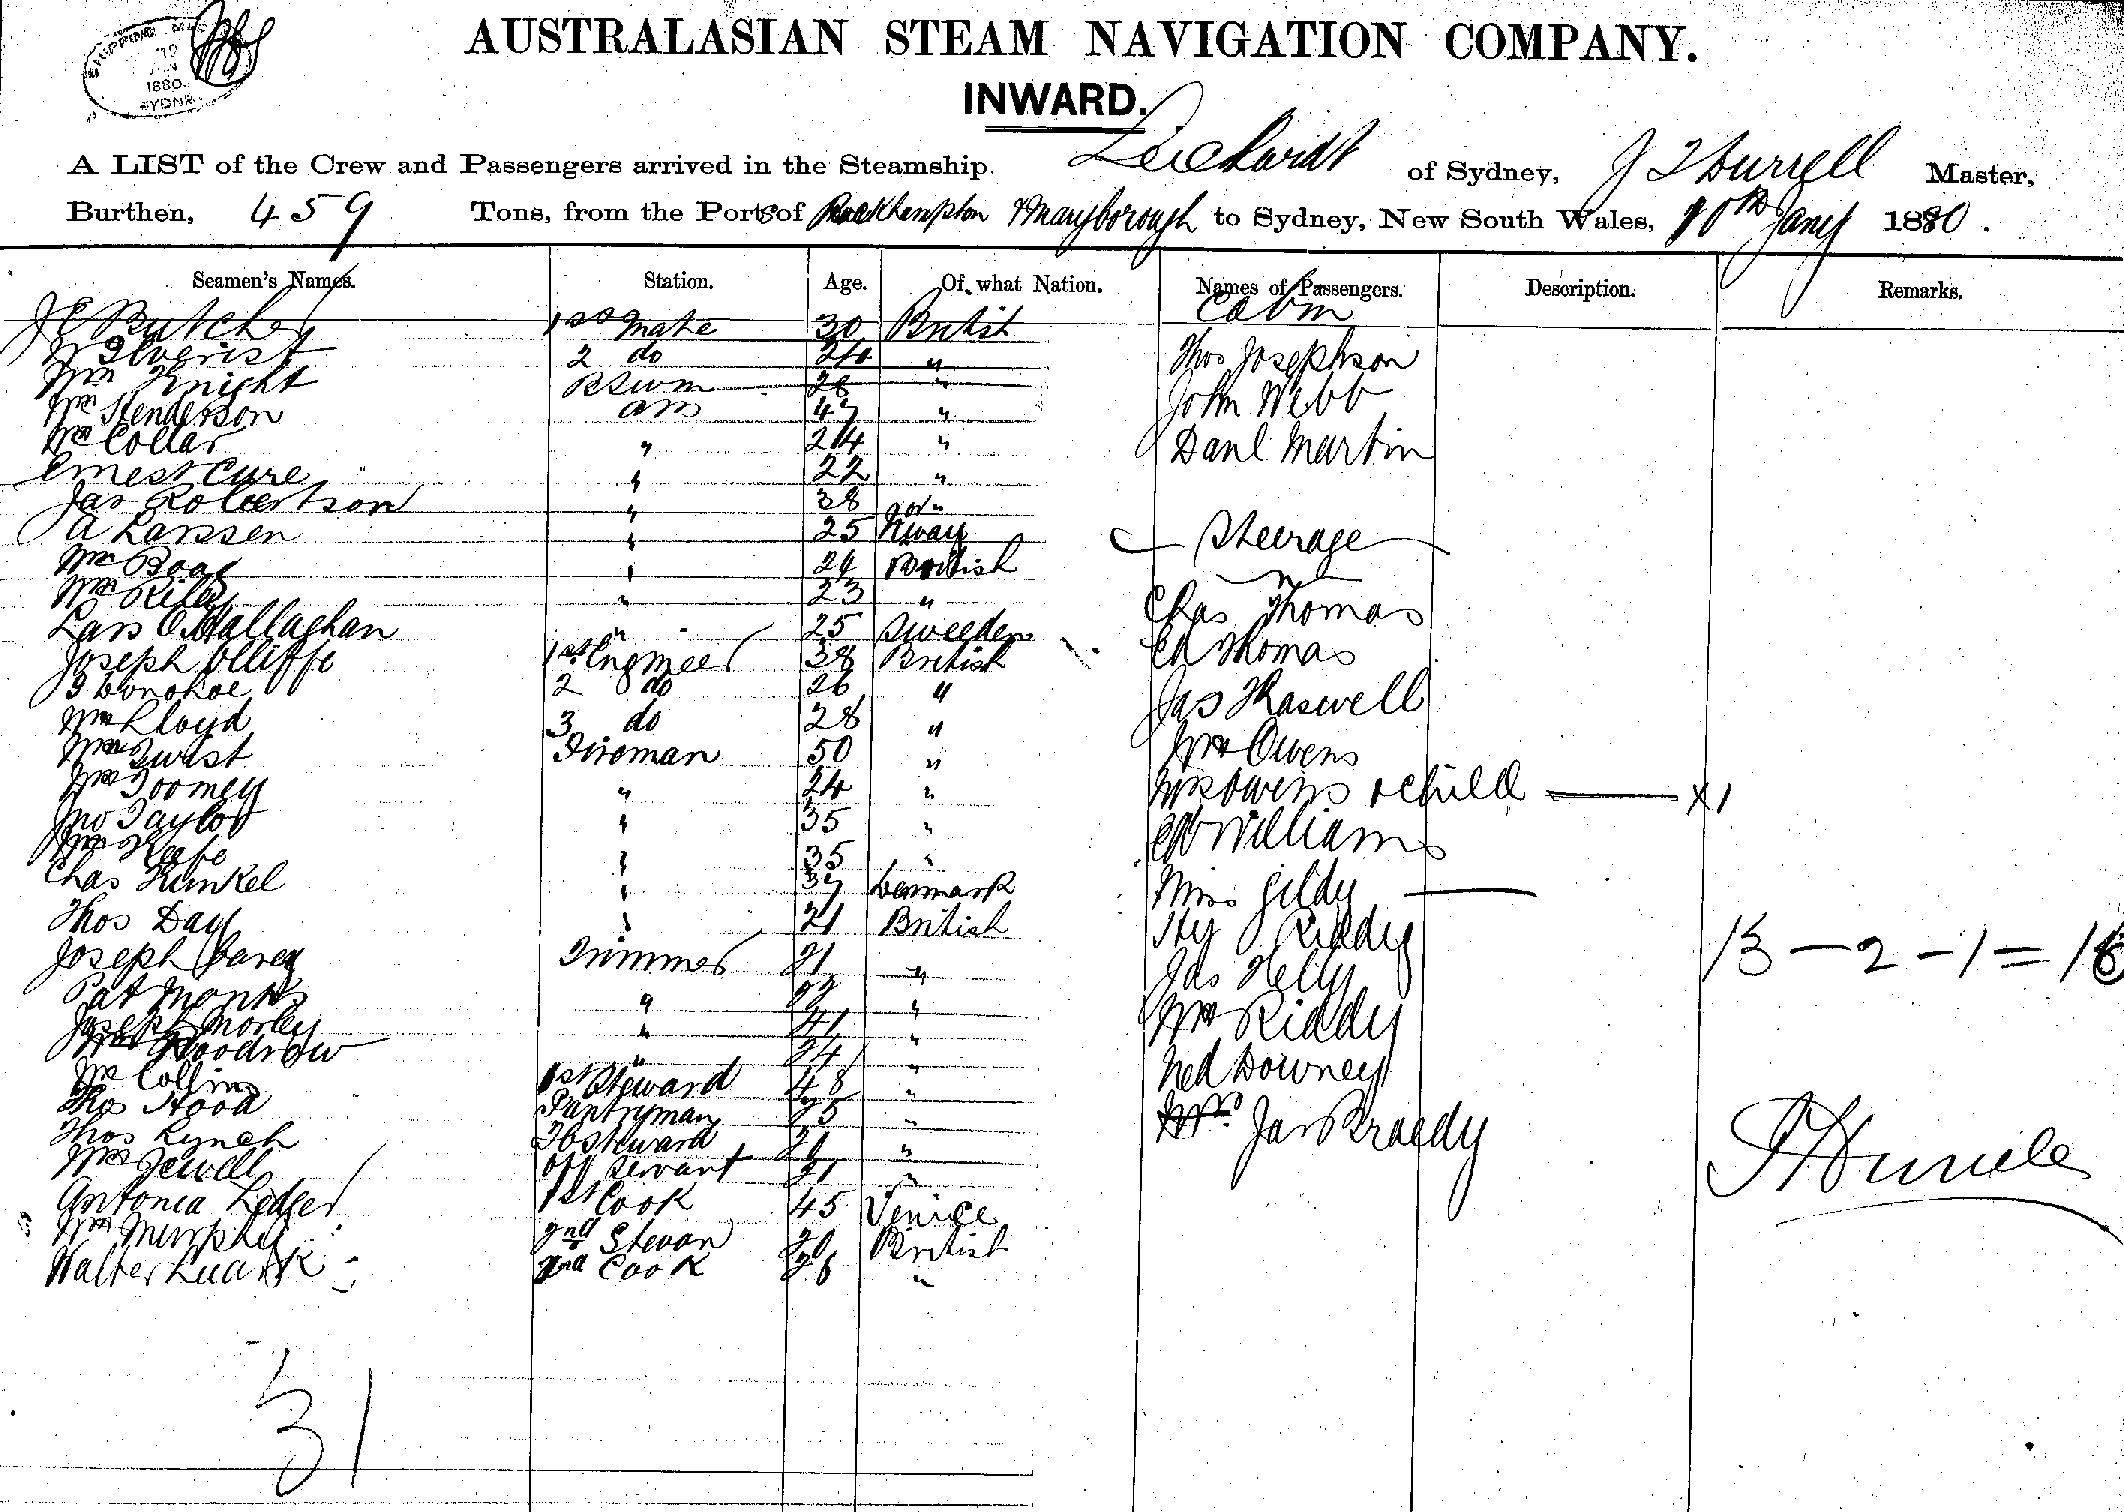 SHIPPING
1880
SYDNEY
AUSTRALASIAN STEAM NAVIGATION COMPANY.
INWARD.
A LIST of the Crew and Passengers arrived in the Steamship. Leichardt of Sydney, Master,
Burthen, 459 Tons, from the Ports of Rockhampton & Maryborough to Sydney, New South Wales, 10th Jany 1880.
Seamen's Names. Station. Age. Of what Nation. Names of Passengers. Description. Remarks.
Cabin
J E Butcher 1st mate 30 British
2 do " Thos Josephson
Wm Knight 28 " John Webb
Wm Henderson AB 47 "
Wm Collar " 24 " Danl Martin
Ernest Cure " 22 "
Jas Robertson " 38 "
A Larssen " 25 Nway Steerage
Wm Boag " 24 British
Wm Riley " 23 " Chas Thomas
Lars O Hallaghan " 25 Sweeden Ed Thomas
Joseph Olliffe 1st Engineer 38 British
Donohoe 2 do 26 " Jas Haswell
Wm Lloyd 3 do 28 "
Wm Twist Fireman 50 " Wm Owens
Wm Toomey " 24 " Mrs Owens & child — X1
Jno Taylor " 35 " Ed Williams
Keefe " 35 "
Chas Kunkel " 37 Denmark Miss Gildy —
Thos Day " 21 British Hy Riddy
Joseph Carey Trimmer 21 " Jas Kelly
13 - 2 - 1 = 16
Pat Monks " 22 " Wm Riddy
Joseph Morley " 41 "
Woodrow " 24 " Ned Downey
Collins 1st Steward 48 "
Thos Hood Pantryman 25 " Jas Braedy
Thos Lynch "
Wm Jewell Servant 21 "
Antonia Ledger 1st Cook 45 Venice
Wm Murphy 2nd British
Walter 2nd Cook "
31